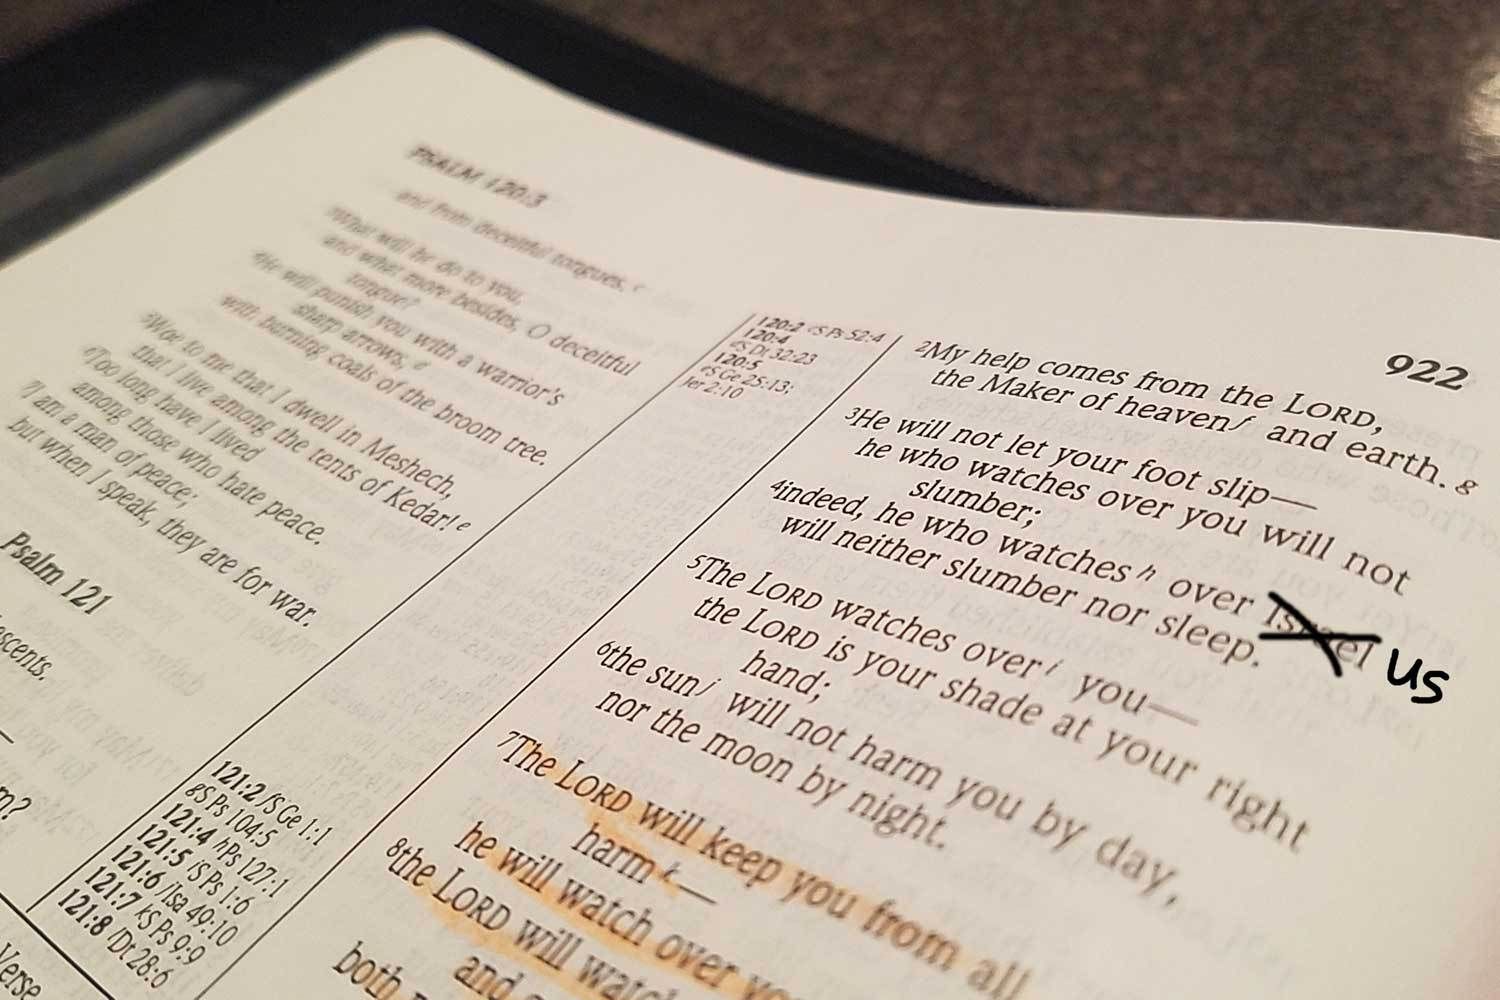 PSALM 120:3
and from deceitful tongues. c
3What will he do to you,
and what more besides, O deceitful
tongue?
4He will punish you with a warrior's
sharp arrows, d
with burning coals of the broom tree.
5Woe to me that I dwell in Meshech,
that I live among the tents of Kedar! e
6Too long have I lived
among those who hate peace.
7I am a man of peace;
but when I speak, they are for war.
Psalm 121
ascents.
m?
120:2 cS Ps 52:4
120:4
dS Dt 32:23
120:5
eS Ge 25:13;
Jer 2:10
121:2 fS Ge 1:1
gS Ps 104:5
121:4 hPs 127:1
121:5 iS Ps 1:6
121:6 jIsa 49:10
121:7 kS Ps 9:9
121:8 lDt 28:6
Verse
922
2My help comes from the LORD,
the Maker of heaven f and earth. g
3He will not let your foot slip—
he who watches over you will not
slumber;
4indeed, he who watches h over Israel us
will neither slumber nor sleep.
5The LORD watches over i you—
the LORD is your shade at your right
hand;
6the sun j will not harm you by day,
nor the moon by night.
7The LORD will keep you from all
harm k—
he will watch over
8the LORD will watch
and
both